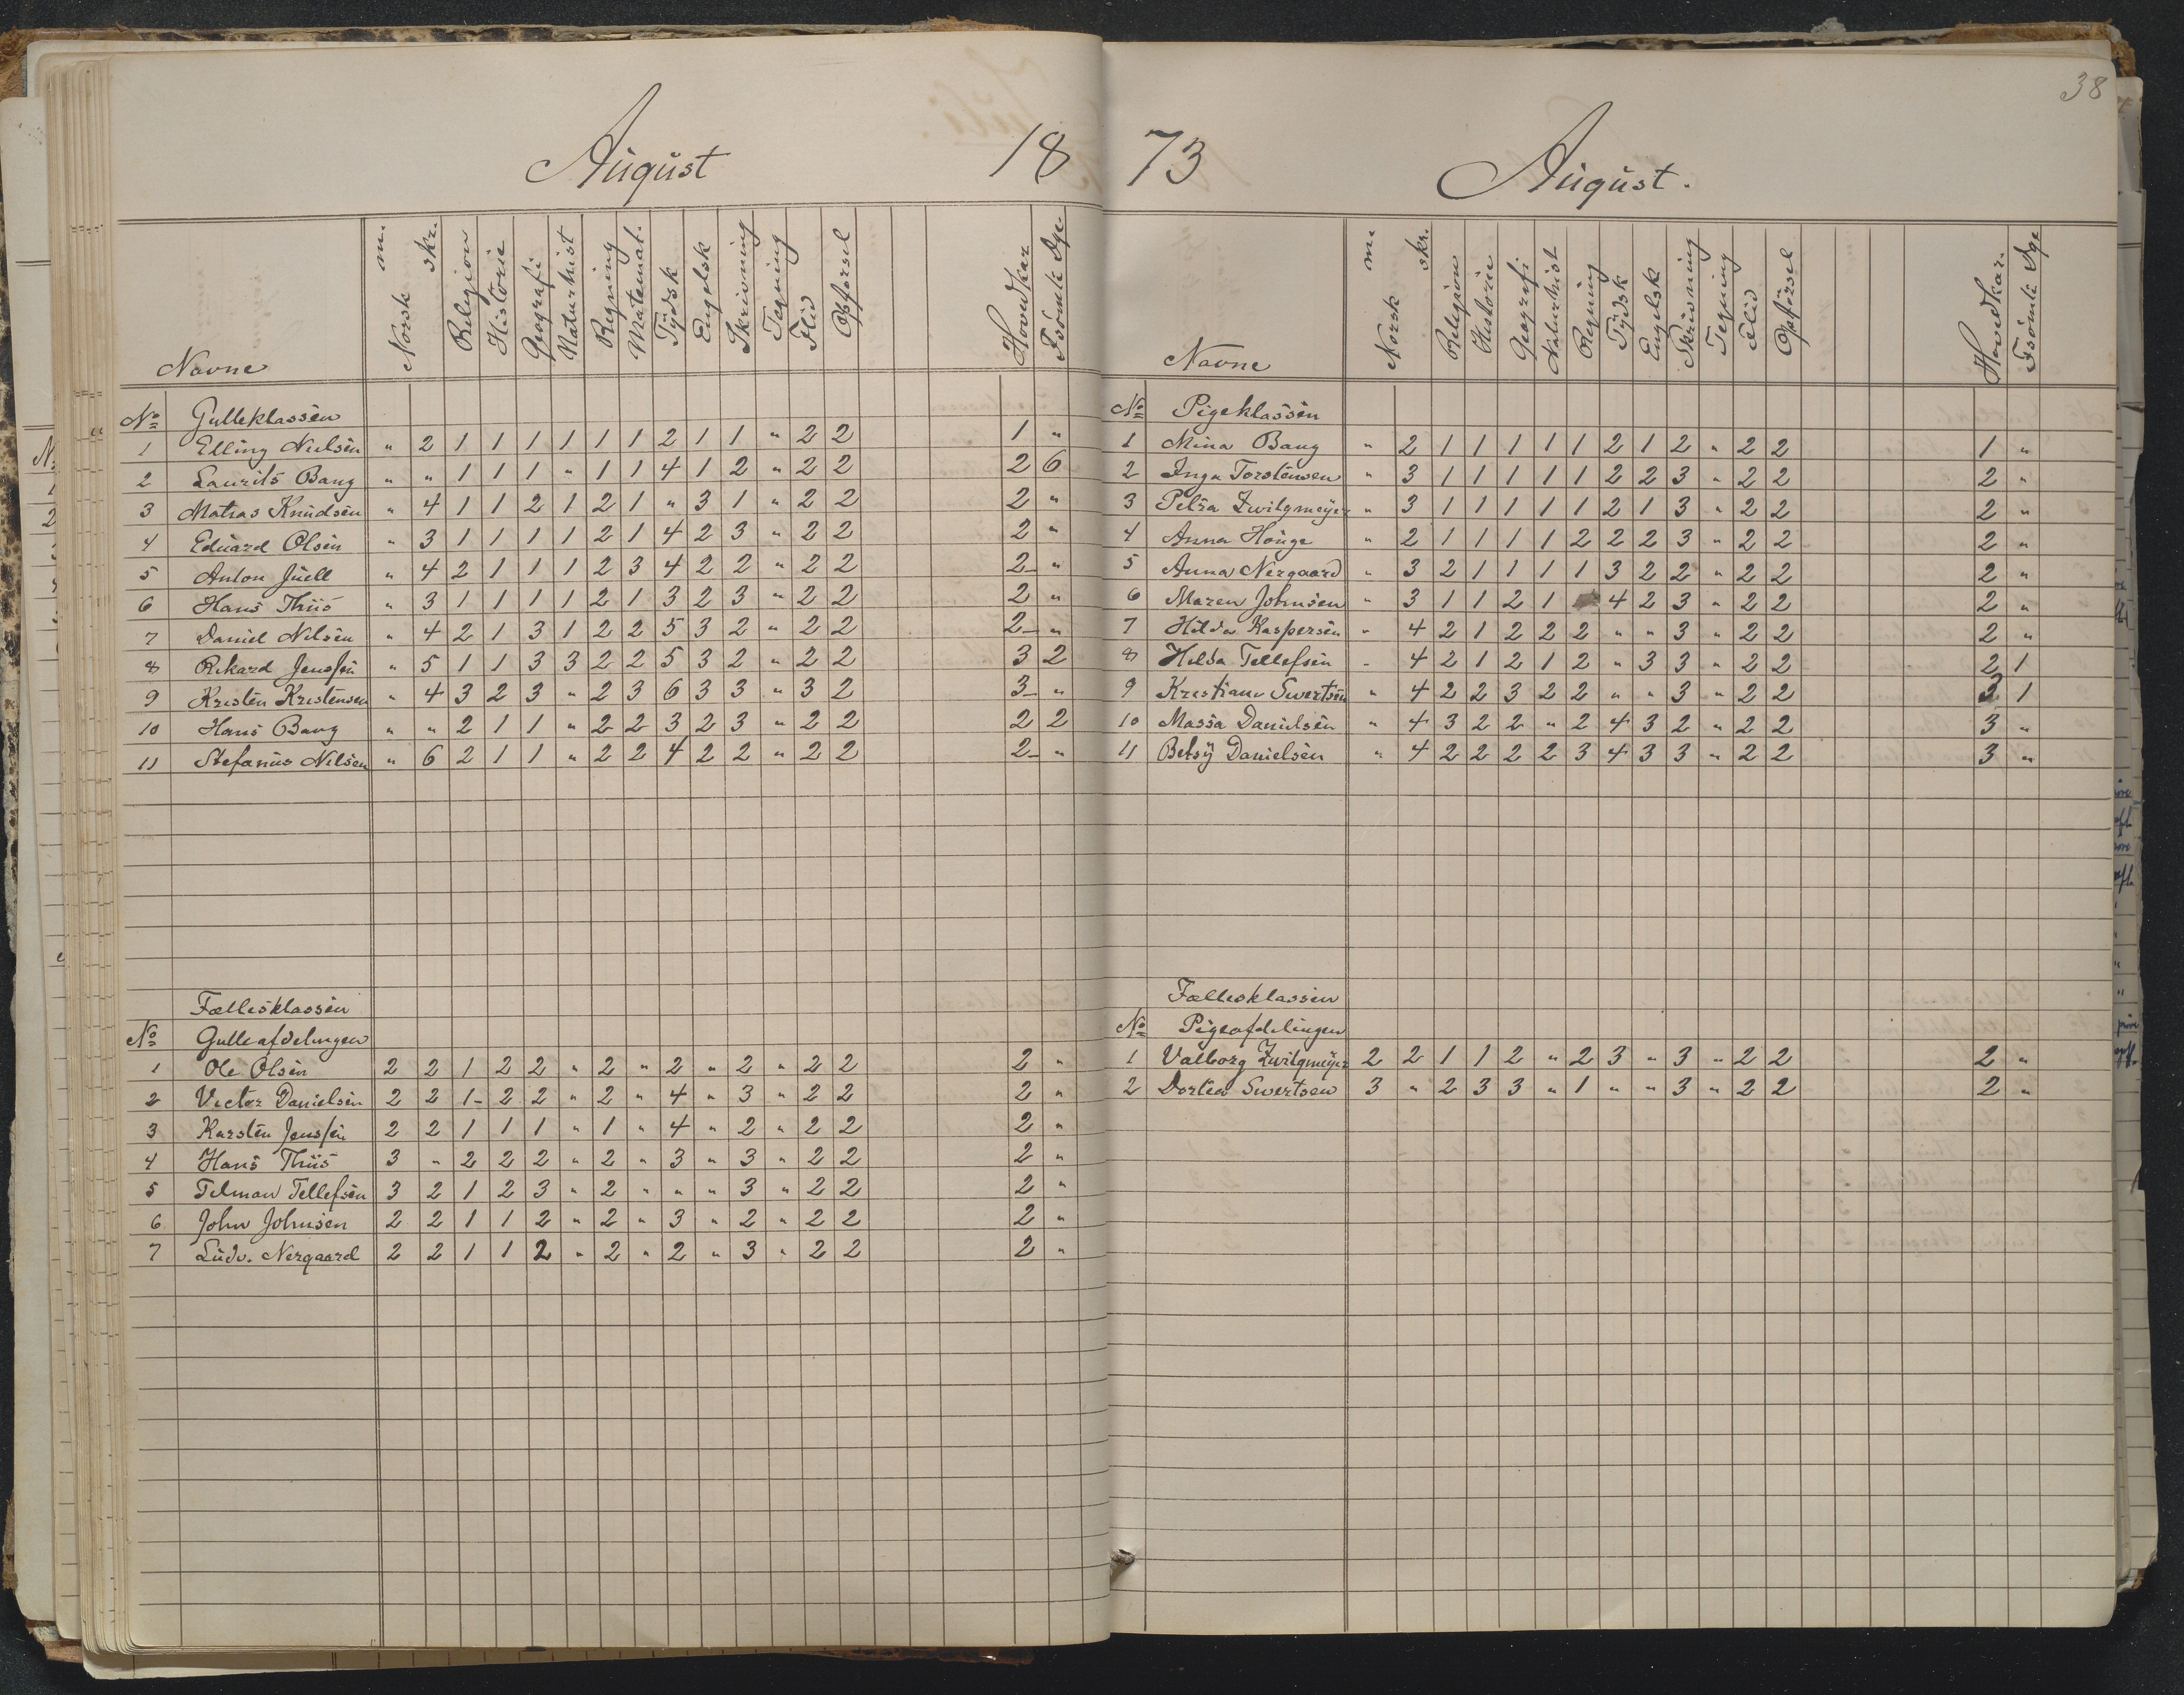 August 18
Navne Norsk m. skr. Religion Historie Geografi Naturhist Regning Matemat. Tydsk Engelsk Skrivning Tegning Flid Opførsel Hovedkar Fsömte Dge
No Gutteklassen
1 Elling Nielsen " 2 1 1 1 1 1 1 2 1 1 " 2 2 1 "
2 Laurits Bang " " 1 1 1 " 1 1 4 1 2 " 2 2 2 6
3 Matias Knudsen " 4 1 1 2 1 2 1 " 3 1 " 2 2 2 "
4 Eduard Olsen " 3 1 1 1 1 2 1 4 2 3 " 2 2 2 "
5 Anton Juell " 4 2 1 1 1 2 3 4 2 2 " 2 2 2- "
6 Hans Thiis " 3 1 1 1 1 2 1 3 2 3 " 2 2 2 "
7 Daniel Nilsen " 4 2 1 3 1 2 2 5 3 2 " 2 2 2- "
8 Rikard Jenssen " 5 1 1 3 3 2 2 5 3 2 " 2 2 3 2
9 Kristen Kristensen " 4 3 2 3 " 2 3 6 3 3 " 3 2 3- "
10 Hans Bang " " 2 1 1 " 2 2 3 2 3 " 2 2 2 2
11 Stefanus Nilsen " 6 2 1 1 " 2 2 4 2 2 " 2 2 2- "
Fællesklassen
No Gutteafdelingen
1 Ole Olsen 2 2 1 2 2 " 2 " 2 " 2 " 2 2 2 "
2 Victor Danielsen 2 2 1- 2 2 " 2 " 4 " 3 " 2 2 2 "
3 Karsten Jenssen 2 2 1 1 1 " 1 " 4 " 2 " 2 2 2 "
4 Hans Thiis 3 " 2 2 2 " 2 " 3 " 3 " 2 2 2 "
5 Telman Tellefsen 3 2 1 2 3 " 2 " " " 3 " 2 2 2 "
6 John Johnsen 2 2 1 1 2 " 2 " 3 " 2 " 2 2 2 "
7 Ludv. Nergaard 2 2 1 1 2 " 2 " 2 " 3 " 2 2 2 "
38
73 August.
Navne Norsk m. skr. Religion Historie Geografi Naturhist Regning Tydsk Engelsk Skrivning Tegning Flid Opførsel Hovedkar. Fsömte Dge
No Pigeklassen
1 Mina Bang " 2 1 1 1 1 1 2 1 2 " 2 2 1 "
2 Inga Torstensen " 3 1 1 1 1 1 2 2 3 " 2 2 2 "
3 Petra Zwilgmeyer " 3 1 1 1 1 1 2 1 3 " 2 2 2 "
4 Anna Houge " 2 1 1 1 1 2 2 2 3 " 2 2 2 "
5 Anna Nergaard " 3 2 1 1 1 1 3 2 2 " 2 2 2 "
6 Maren Johnsen " 3 1 1 2 1 4 2 3 " 2 2 2 "
7 Hilda Kaspersen " 4 2 1 2 2 2 " " 3 " 2 2 2 "
8 Hilda Tellefsen " 4 2 1 2 1 2 " 3 3 " 2 2 2 1
9 Kristiane Swertsen " 4 2 2 3 2 2 " " 3 " 2 2 3 1
10 Massa Danielsen " 4 3 2 2 " 2 4 3 2 " 2 2 3 "
11 Betsy Danielsen " 4 2 2 2 2 3 4 3 3 " 2 2 3 "
Fællesklassen
No Pigeafdelingen
1 Valborg Zwilgmeyer 2 2 1 1 2 " 2 3 " 3 " 2 2 2 "
2 Dortea Swertsen 3 " 2 3 3 " 1 " " 3 " 2 2 2 "